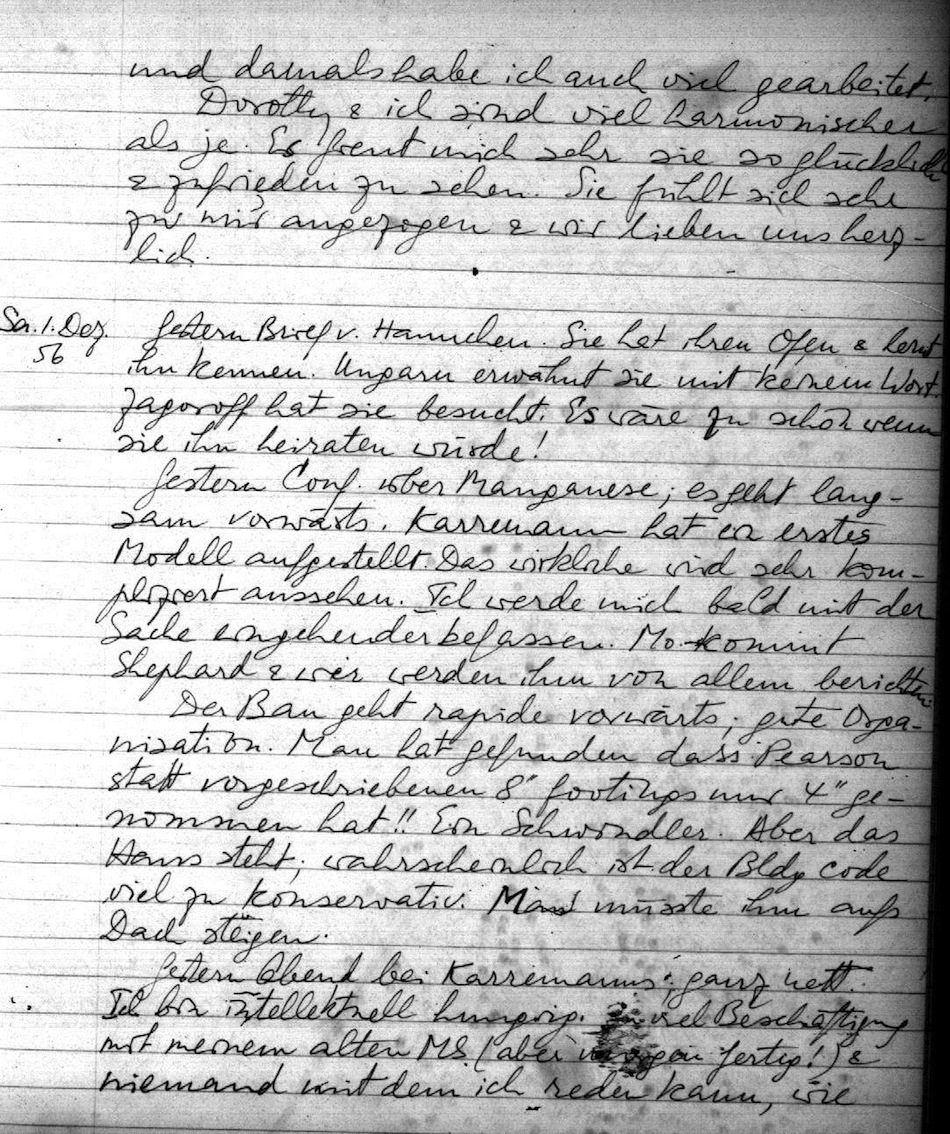 und damals habe ich auch viel gearbeitet.
Dorothy & ich sind viel harmonischer
als je. Es freut mich sehr sie so glücklich
& zufrieden zu sehen. Sie fühlt sich sehr
zu mir angezogen & wir lieben uns herz-
lich.
Sa. 1. Dez. Gestern Brief v. Hannchen. Sie hat ihren Ofen & lernt
56 ihn kennen. Ungarn erwähnt sie mit keinem Wort.
Zagoroff hat sie besucht. Es wäre zu schön wenn
sie ihn heiraten würde!
Gestern Conf. über Manganese; es geht lang-
sam vorwärts. Karremann hat ein erstes
Modell aufgestellt. Das wirkliche wird sehr kom-
pliziert aussehen. Ich werde mich bald mit der
Sache eingehender befassen. Mo. kommt
Shephard & wir werden ihm von allem berichten.
Der Bau geht rapide vorwärts; gute Orga-
nisation. Man hat gefunden dass Pearson
statt vorgeschriebenen 8" footings nur 4" ge-
nommen hat!! Ein Schwindler. Aber das
Haus steht; wahrscheinlich ist der Bldg code
viel zu konservativ. Man müsste ihm aufs
Dach steigen.
Gestern Abend bei Karremanns; ganz nett.
Ich bin intellektuell hungrig. viel Beschäftigung
mit meinem alten MS (aber morgen fertig!) &
niemand mit dem ich reden kann, wie